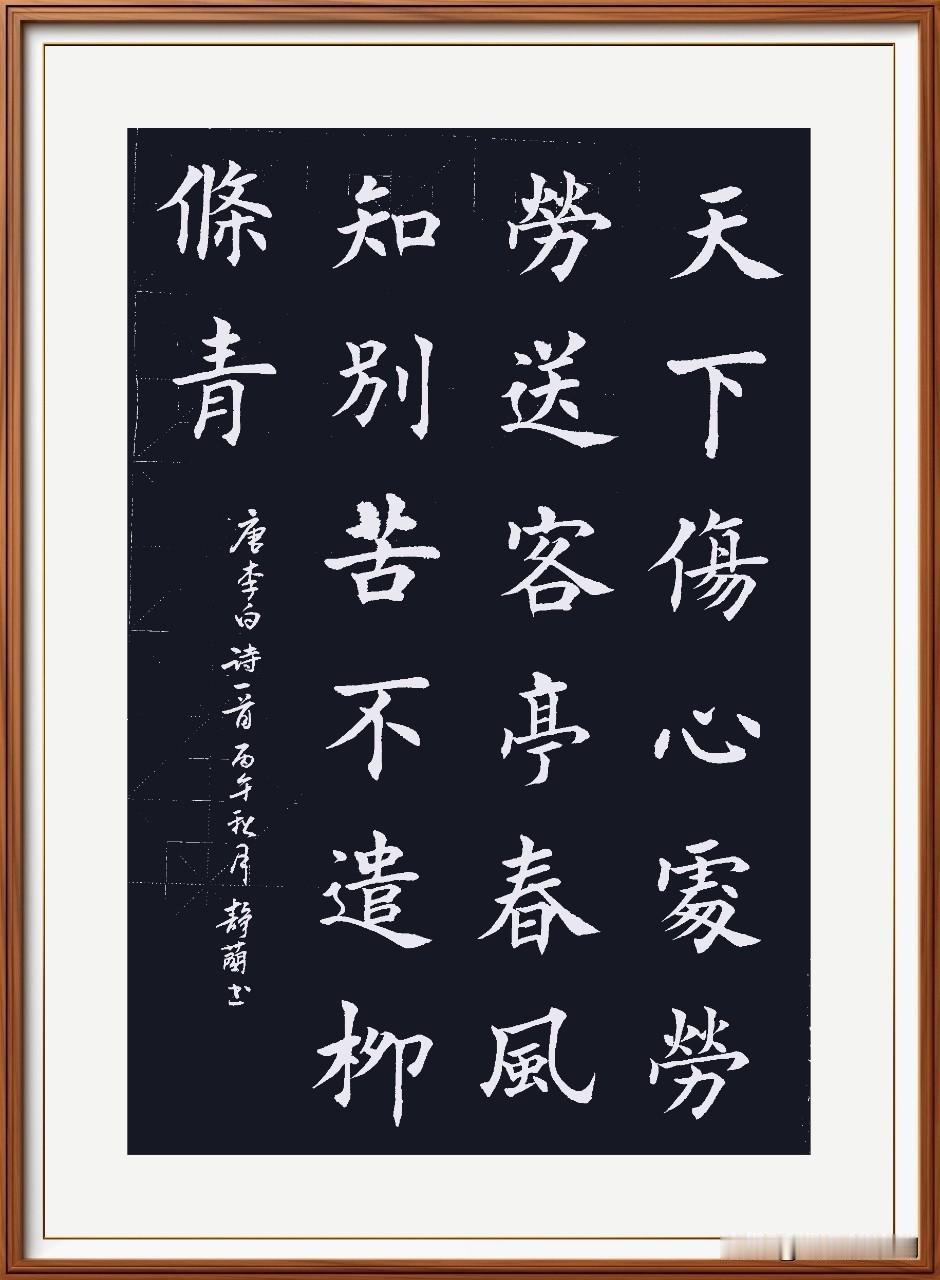 天下傷心處勞
勞送客亭春風
知別苦不遣柳
條青
唐李白诗一首丙午秋月 靜蘭书